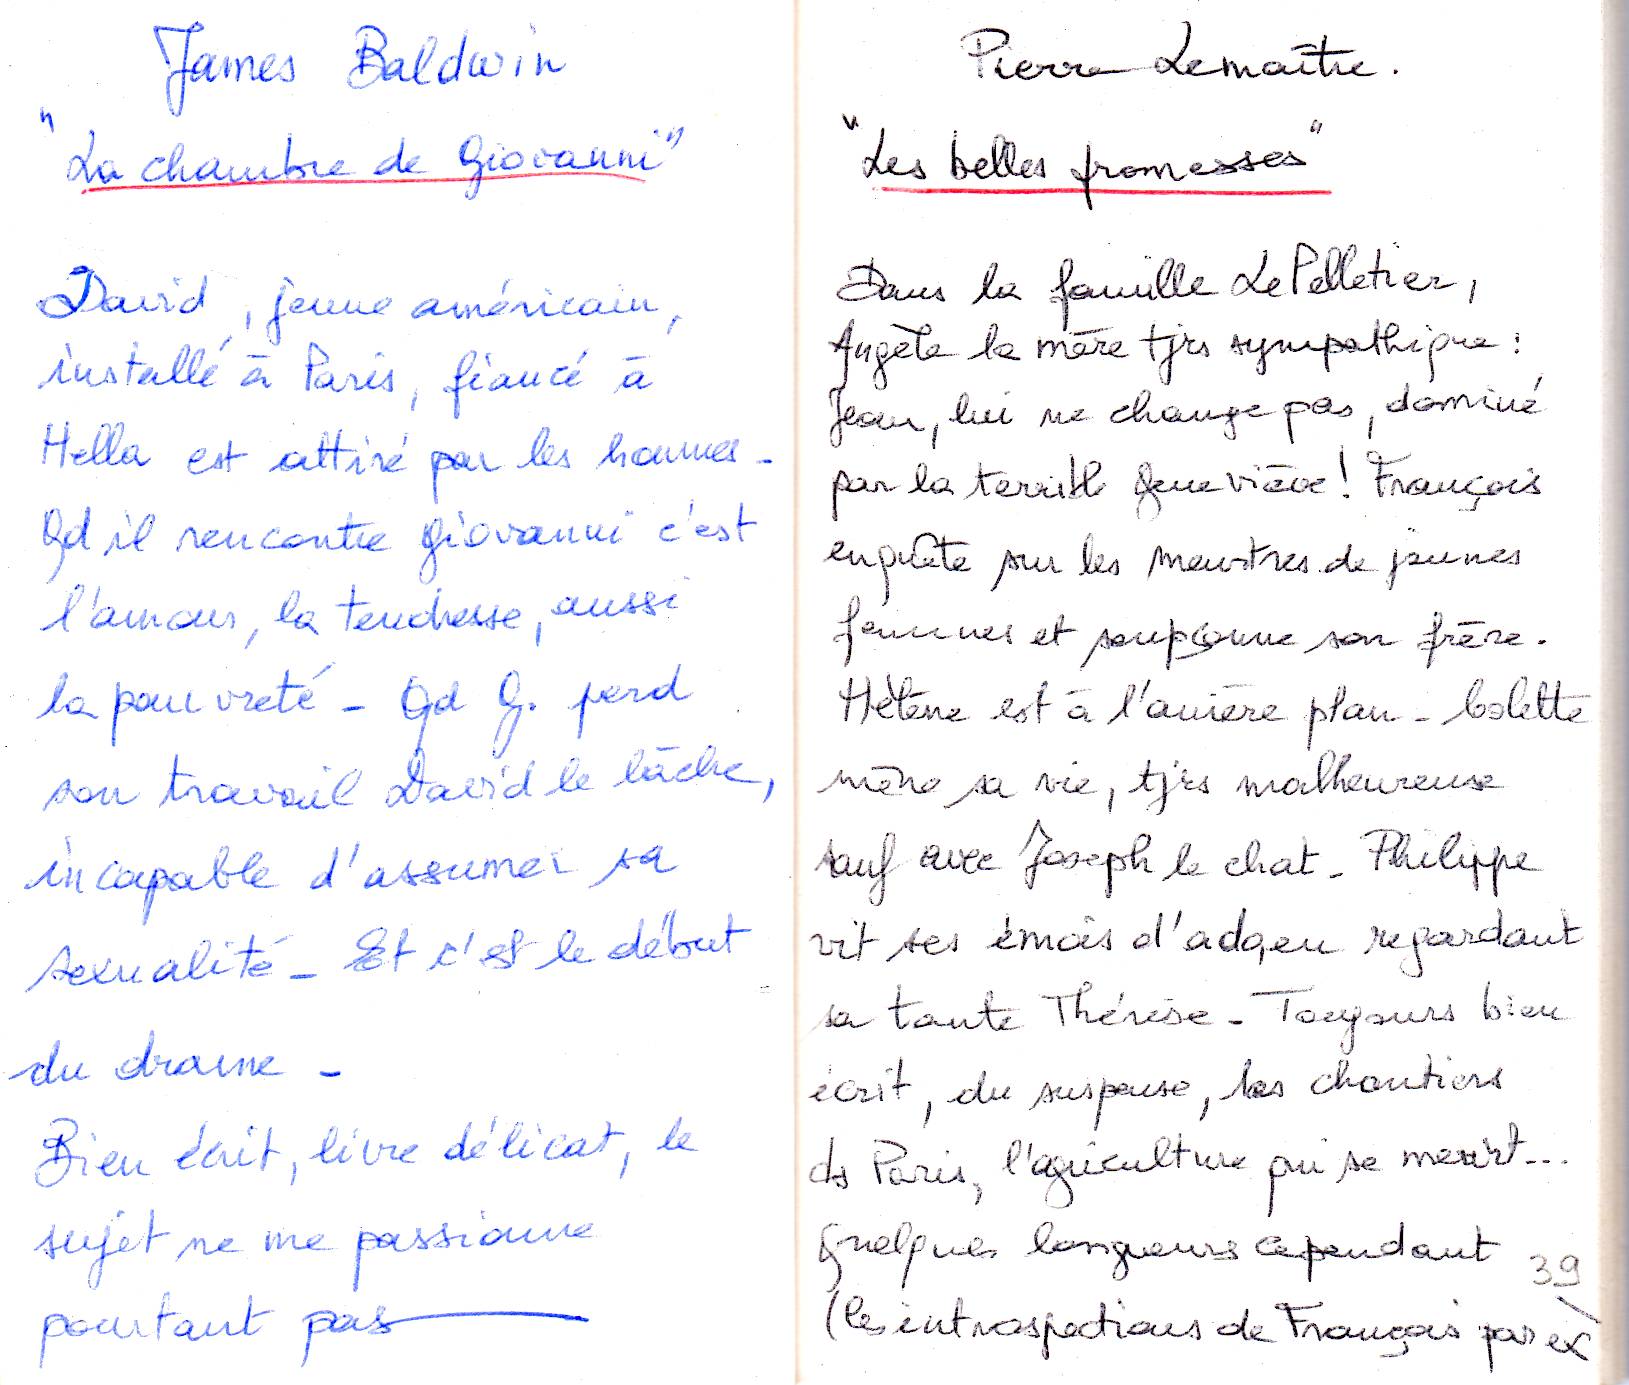 James Baldwin
"La chambre de Giovanni"
David, jeune américain,
installé à Paris, fiancé à
Hella est attiré par les hommes -
Qd il rencontre Giovanni c'est
l'amour, la tendresse, aussi
la pauvreté - Qd G. perd
son travail David le lâche,
incapable d'assumer sa
sexualité - Et c'est le début
du drame -
Bien écrit, livre délicat, le
sujet ne me passionne
pourtant pas
Pierre Lemaître.
"Les belles promesses"
Dans la famille Le Pelletier,
Angèle la mère tjrs sympathique :
Jean, lui ne change pas, dominé
par la terrible Geneviève ! François
enquête sur les meurtres de jeunes
femmes et soupçonne son frère.
Hélène est à l'arrière plan - Colette
mène sa vie, tjrs malheureuse
sauf avec Joseph le chat - Philippe
vit ses émois d'ado, en regardant
sa tante Thérèse - Toujours bien
écrit, du suspense, les chantiers
ds Paris, l'agriculture qui se meurt...
Quelques longueurs cependant
(les introspections de François par ex
39